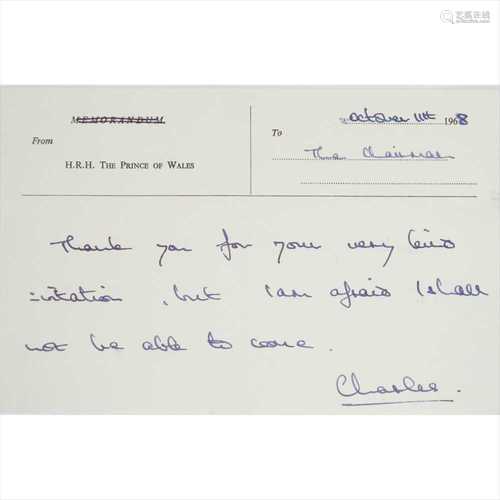 MEMORANDUM
From
H.R.H. The Prince of Wales
October 11th 1968
To
The Chairman
Thank you for your very kind
invitation, but I am afraid I shall
not be able to come.
Charles.